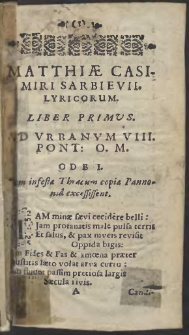 (1)
MATTHIÆ CASI-
MIRI SARBIEVII.
LYRICORUM.
LIBER PRIMUS.
AD VRBANVM VIII.
PONT: O. M.
ODE I.
infestæ Thracum copiæ Panno-
excessissent.
IAM minæ sævi cecidere belli:
Iam profanatis male pulsa terris
Et salus, & pax niveis revisit
Oppida bigis:
Iam Fides & Fas & amœna præter
Faustitas læto volat arva curru:
fluunt passim pretiosa largis
Sæcula rivis.
A
Candi-